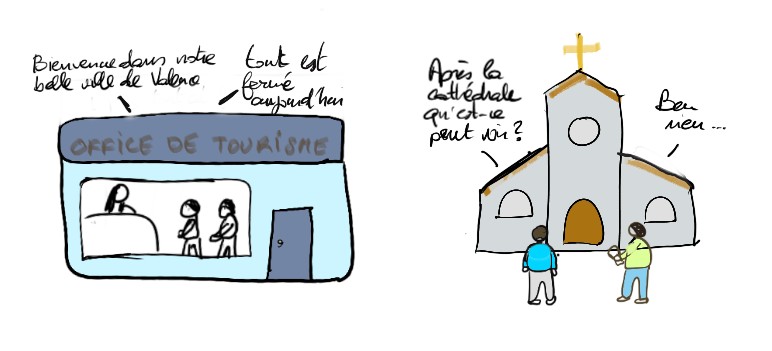 Bienvenue dans notre
belle ville de Valence
tout est
fermé
aujourd'hui
OFFICE DE TOURISME
Après la
cathédrale
qu'est-ce
peut voir ?
Ben
rien...